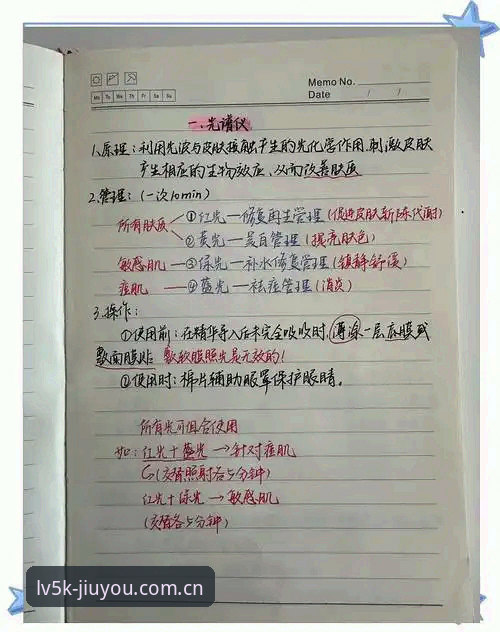 Memo No.
Mo Tu We Th Fr Sa Su
Date / /
一、光谱仪
1.原理：利用光波与皮肤接触产生的光化学作用,刺激皮肤
产生相应的生物效应，从而改善肤质
2.管理：(一次10min)
所有肤质
①红光—修复再生管理(促进皮肤新陈代谢)
②黄光—美白管理(提亮肤色)
敏感肌—③绿光—补水修复管理(镇静舒缓)
痘肌—④蓝光—祛痘管理(消炎)
3.操作：
①使用前：在精华导入后未完全吸收时,薄涂一层底膜或
敷面膜纸 敷软膜照光是无效的!
②使用时：棉片辅助眼罩保护眼睛。
所有光可组合使用
如：红光+蓝光→针对痘肌
(交替照射各5分钟)
红光+绿光→敏感肌
(交替各5分钟)
lv5k-jiuyou.com.cn